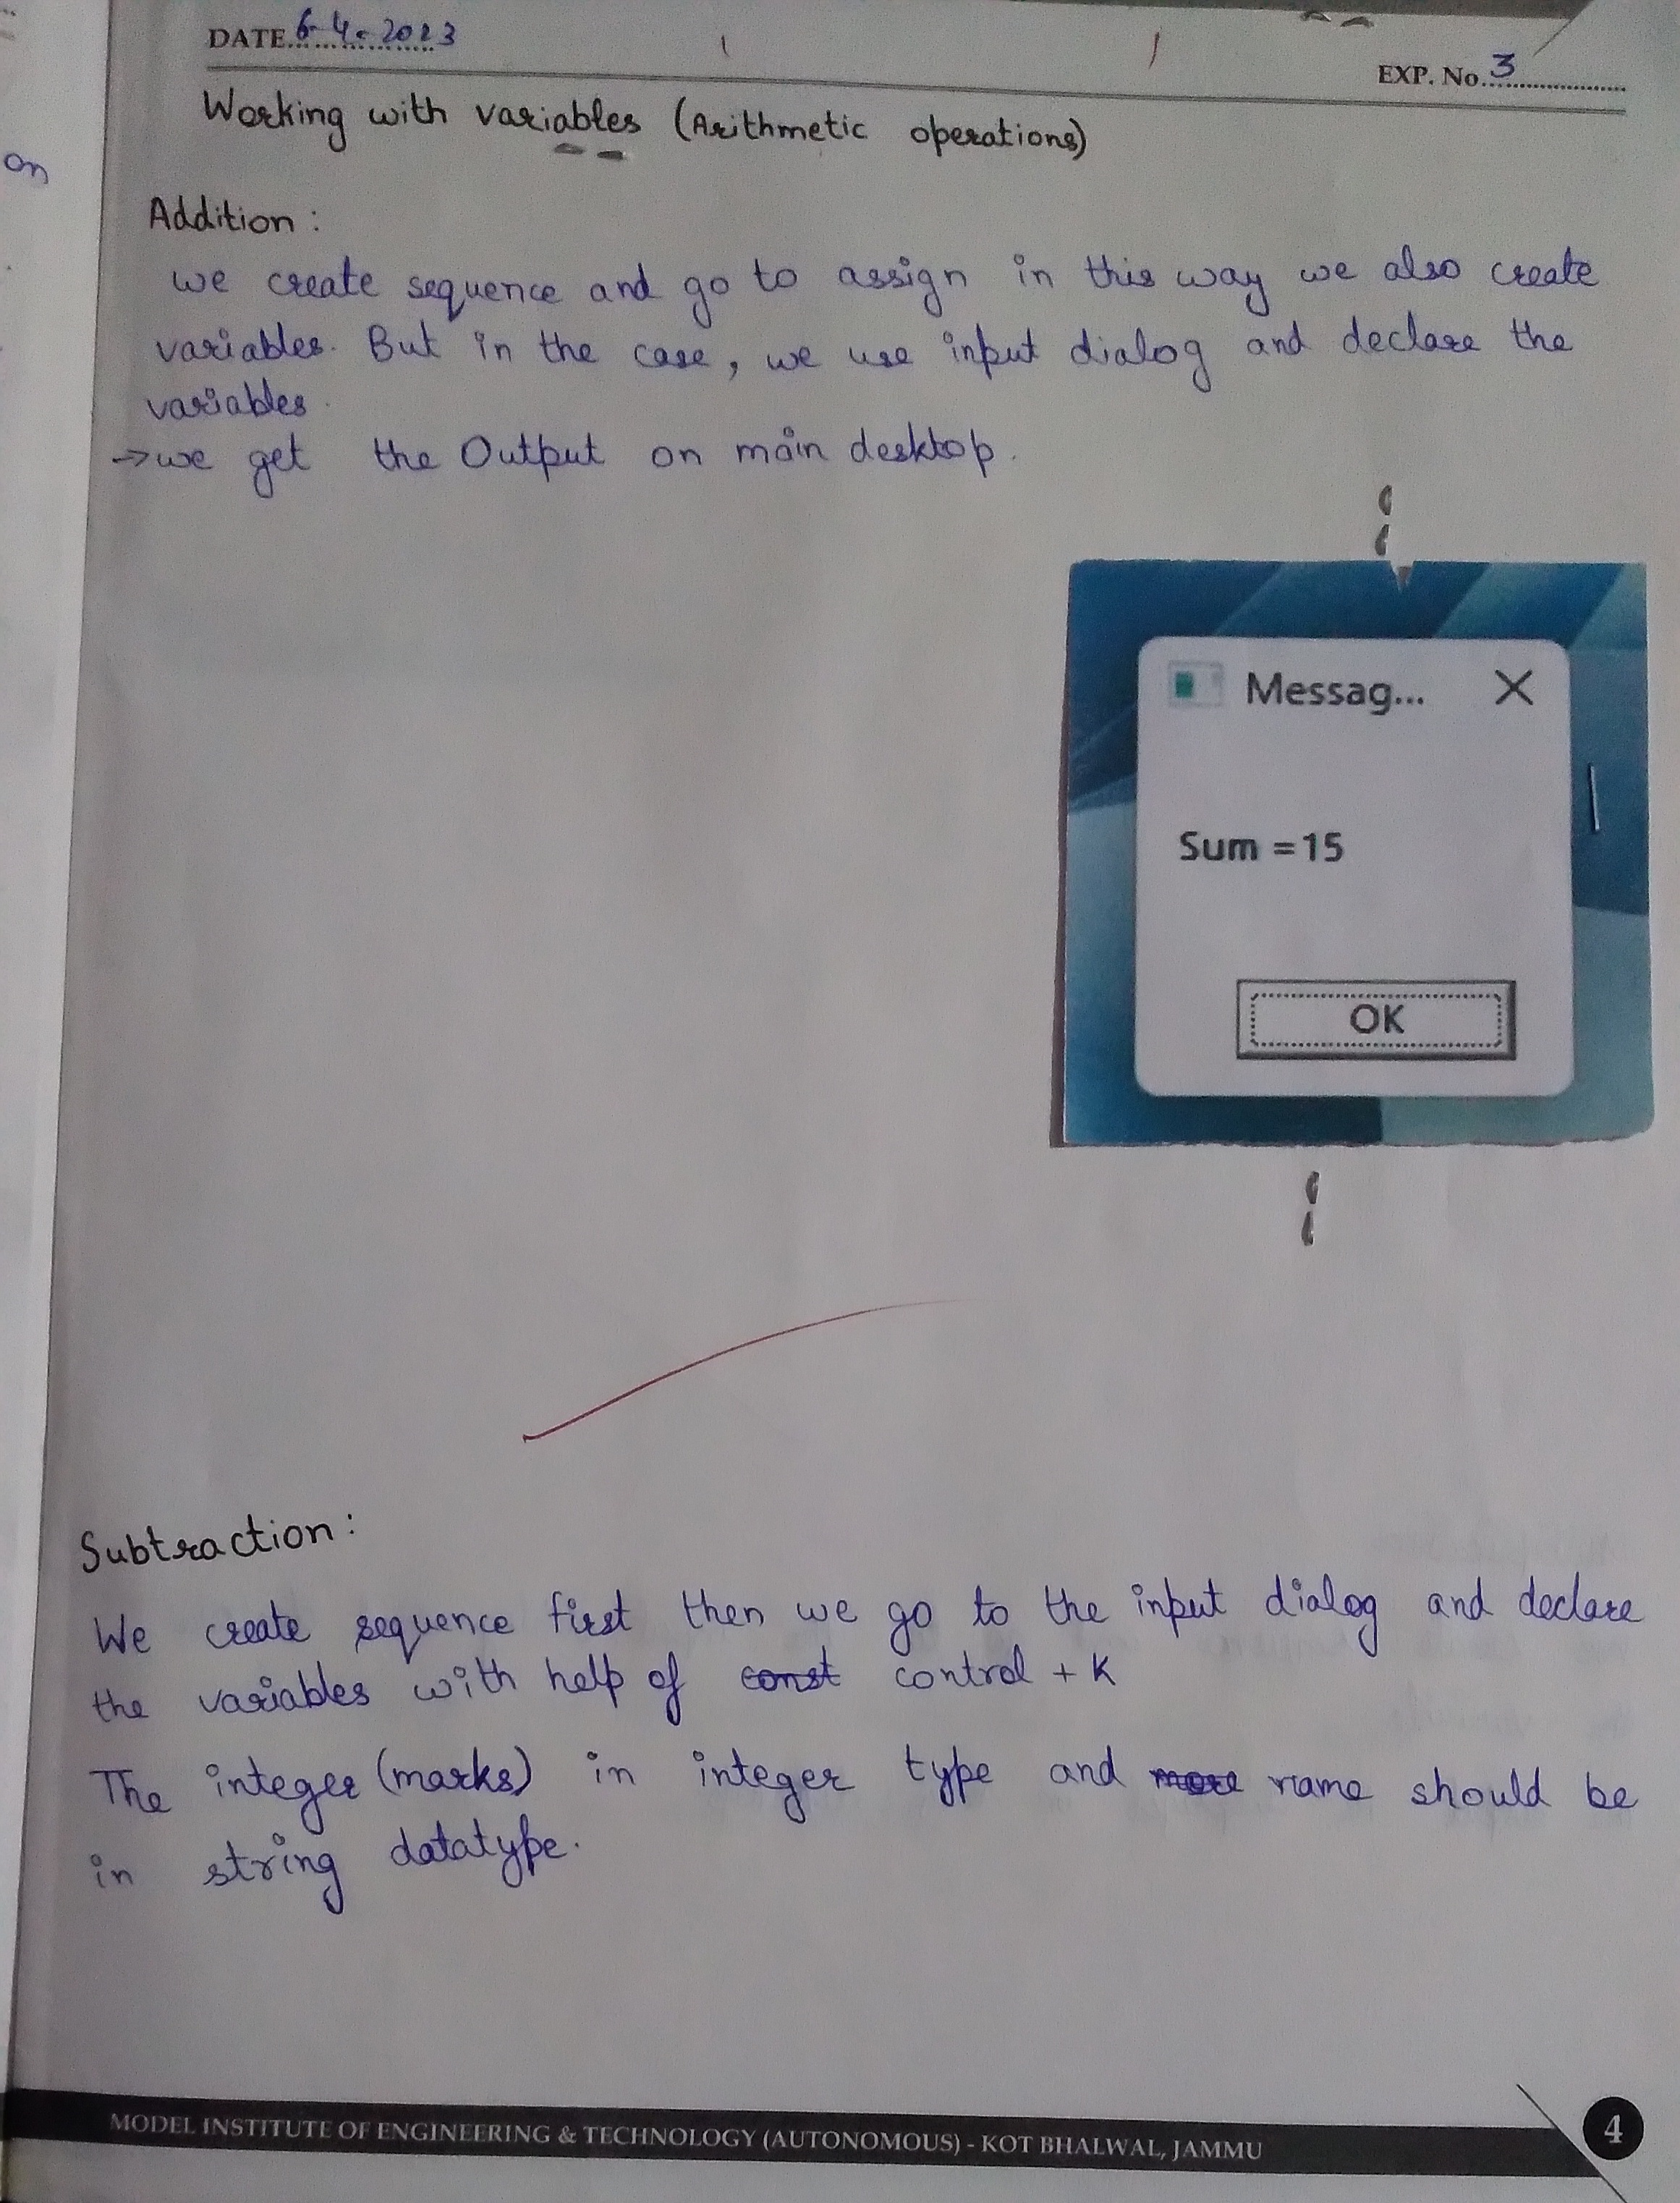 DATE 6-4-2023
EXP. No. 3
Working with variables (Arithmetic operations)
on
Addition :
we create sequence and go to assign in this way we also create
variables. But in the case, we use input dialog and declare the
variables.
→we get the Output on main desktop.
Messag...
Sum =15
OK
Subtraction :
We create sequence first then we go to the input dialog and declare
the variables with help of const control + K
The integer (marks) in integer type and more name should be
in string datatype.
MODEL INSTITUTE OF ENGINEERING & TECHNOLOGY (AUTONOMOUS) - KOT BHALWAL, JAMMU
4